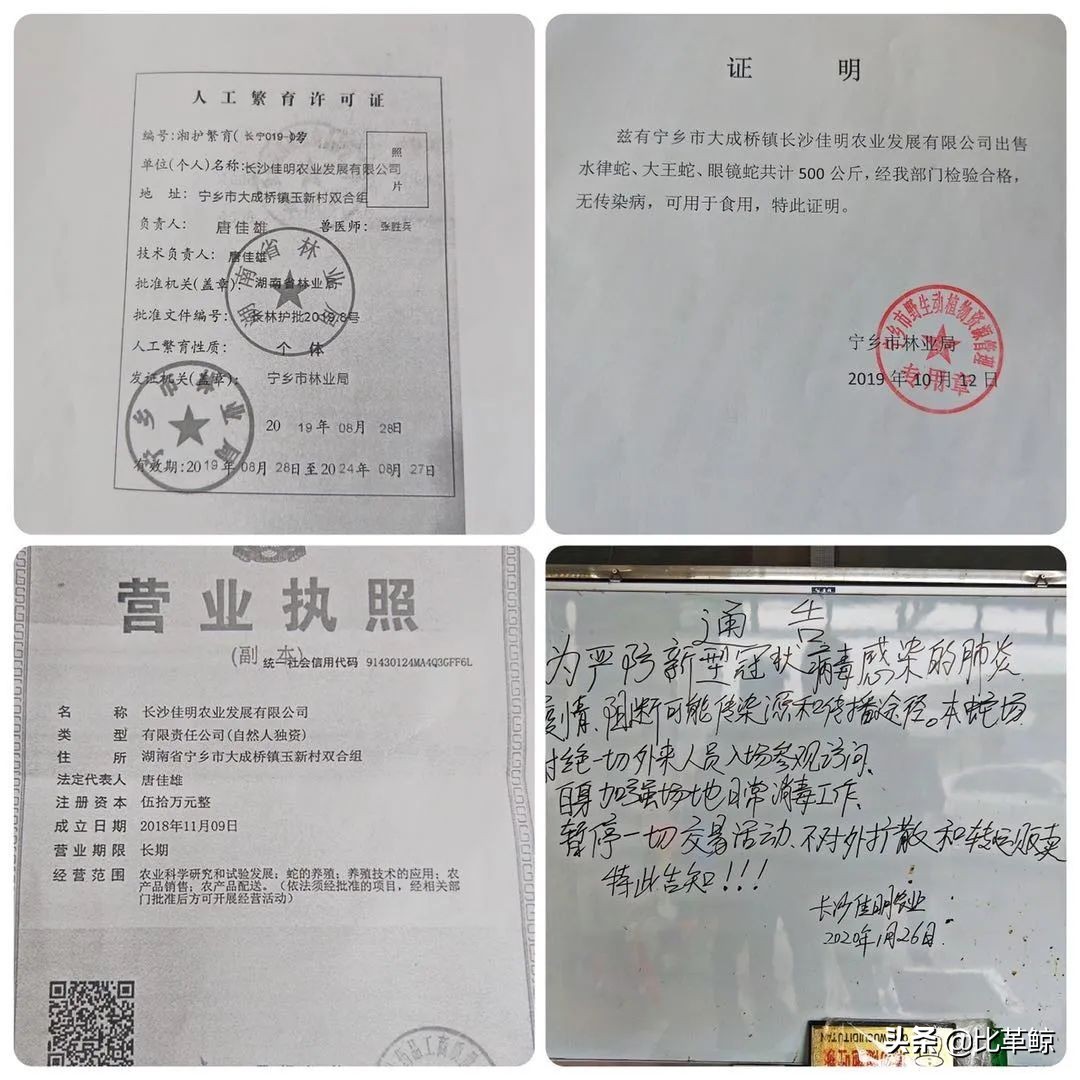 人工繁育许可证
编号:湘护繁育(长宁019-
照片
单位(个人)名称:长沙佳明农业发展有限公司
地 址: 宁乡市大成桥镇玉新村双合组
负责人: 唐佳雄 兽医师: 张胜兵
技术负责人: 唐佳雄
批准机关(盖章): 湖南省林业局
批准文件编号: 长林护批2019.8号
人工繁育性质: 个 体
发证机关(盖章): 宁乡市林业局
2019年08月28日
有效期:2019年08月28日至2024年08月27日
湖南省林业局
宁乡市林业局
证 明
兹有宁乡市大成桥镇长沙佳明农业发展有限公司出售
水律蛇、大王蛇、眼镜蛇共计 500 公斤,经我部门检验合格,
无传染病,可用于食用,特此证明。
宁乡市林业局
2019 年 10 月 12 日
宁乡市野生动植物资源管理
专用章
营业执照
(副 本)
统一社会信用代码 91430124MA4Q3GFF6L
名 称 长沙佳明农业发展有限公司
类 型 有限责任公司(自然人独资)
住 所 湖南省宁乡市大成桥镇玉新村双合组
法定代表人 唐佳雄
注册资本 伍拾万元整
成立日期 2018年11月09日
营业期限 长期
经营范围 农业科学研究和试验发展;蛇的养殖;养殖技术的应用;农
产品销售;农产品配送。(依法须经批准的项目,经相关部
门批准后方可开展经营活动)
通 告
为严防新型冠状病毒感染的肺炎
疫情、阻断可能传染源和传播途径。本蛇场
拒绝一切外来人员入场参观访问、
自身加强场地日常消毒工作、
暂停一切交易活动、不对外扩散和转运贩卖
特此告知!!!
长沙佳明农业
2020年1月26日.
头条@比革鲸